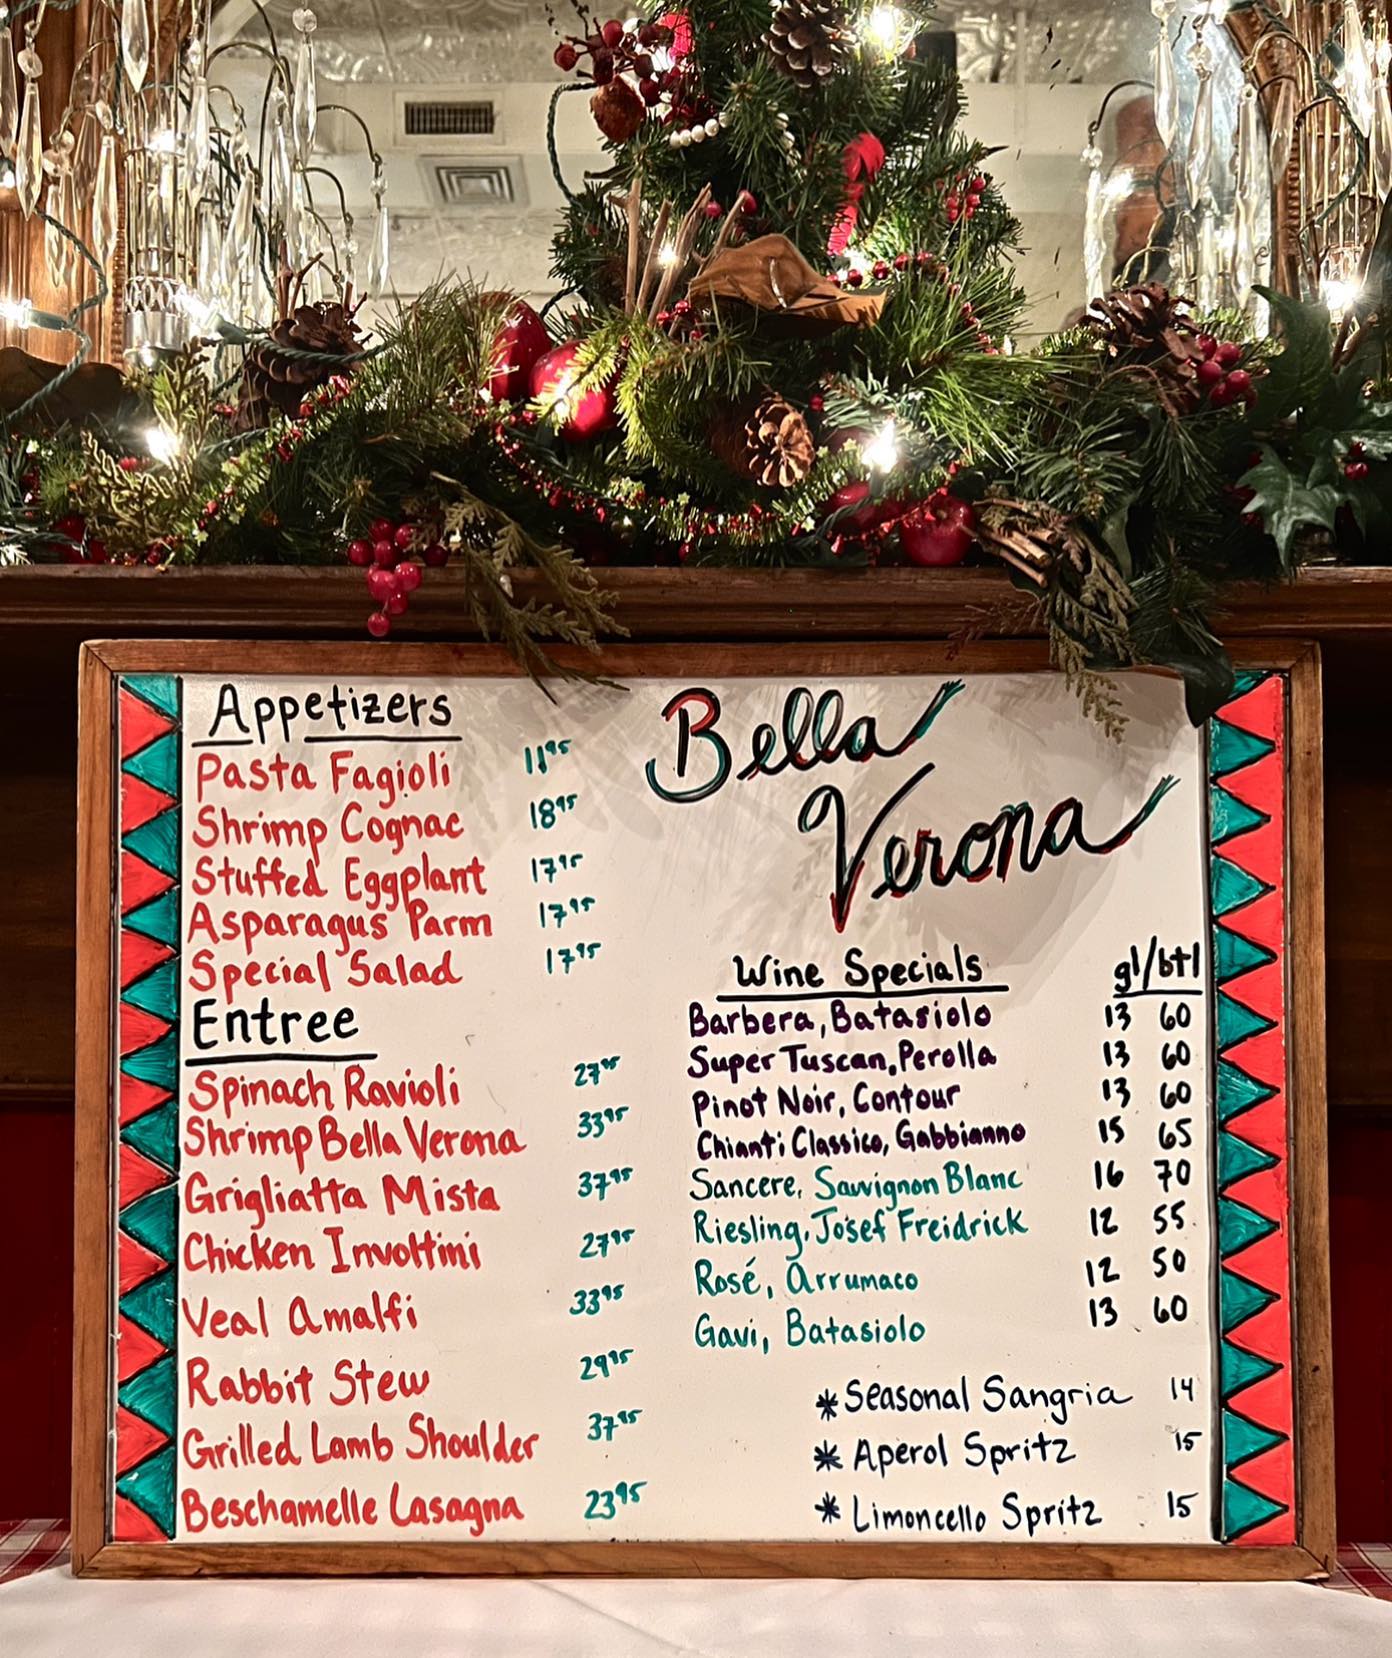 Appetizers
Pasta Fagioli 11⁹⁵
Shrimp Cognac 18⁹⁵
Stuffed Eggplant 17⁹⁵
Asparagus Parm 17⁹⁵
Special Salad 17⁹⁵
Entree
Spinach Ravioli 27⁹⁵
Shrimp Bella Verona 33⁹⁵
Grigliatta Mista 37⁹⁵
Chicken Involtini 27⁹⁵
Veal Amalfi 33⁹⁵
Rabbit Stew 29⁹⁵
Grilled Lamb Shoulder 37⁹⁵
Beschamelle Lasagna 23⁹⁵
Bella
Verona
Wine Specials gl/btl
Barbera, Batasiolo 13 60
Super Tuscan, Perolla 13 60
Pinot Noir, Contour 13 60
Chianti Classico, Gabbianno 15 65
Sancere, Sauvignon Blanc 16 70
Riesling, Josef Freidrick 12 55
Rosé, Arrumaco 12 50
Gavi, Batasiolo 13 60
* Seasonal Sangria 14
* Aperol Spritz 15
* Limoncello Spritz 15